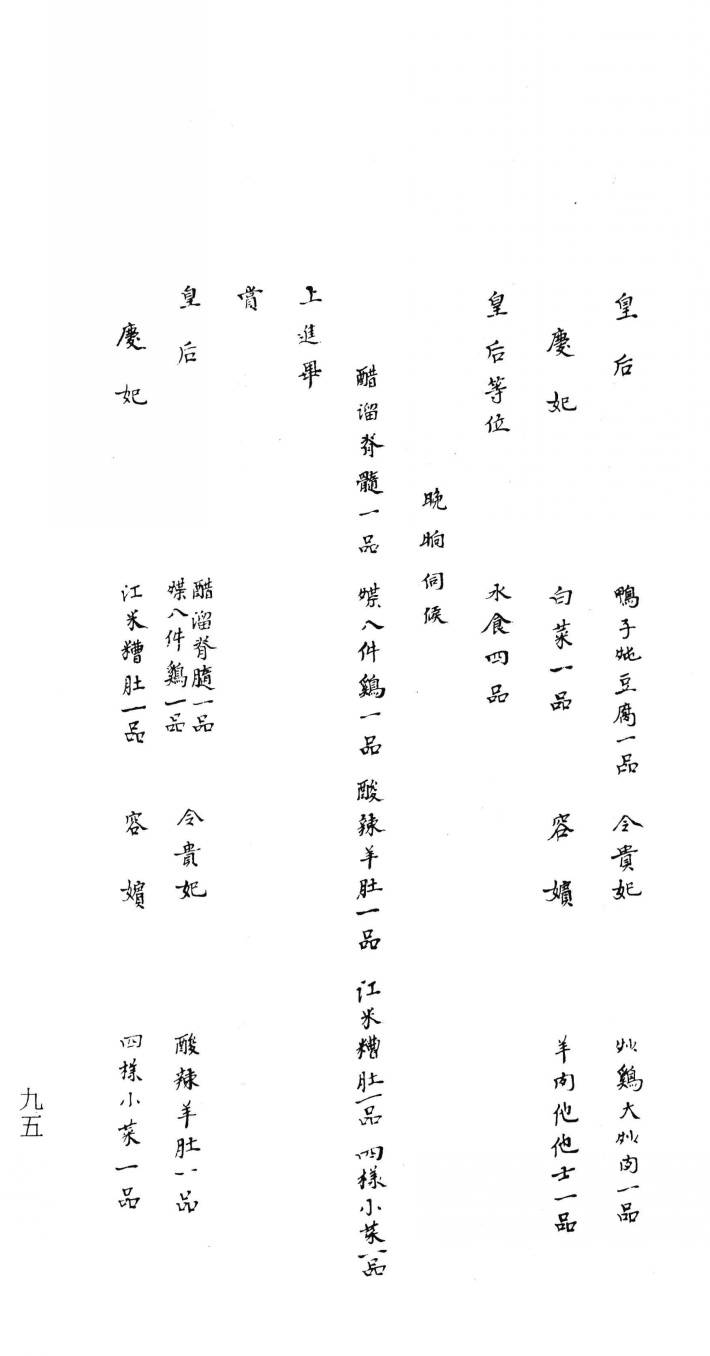 皇后 鴨子炖豆腐一品 令貴妃 炒鷄大炒肉一品
慶妃 白菜一品 容嬪 羊肉他他士一品
皇后等位 氷食四品
晚晌伺候
醋溜脊髓一品 煠八件鷄一品 酸辣羊肚一品 江米糟肚一品 四樣小菜一品
上進畢
賞
皇后 醋溜脊髓一品 煠八件鷄一品 令貴妃 酸辣羊肚一品
慶妃 江米糟肚一品 容嬪 四樣小菜一品
九五